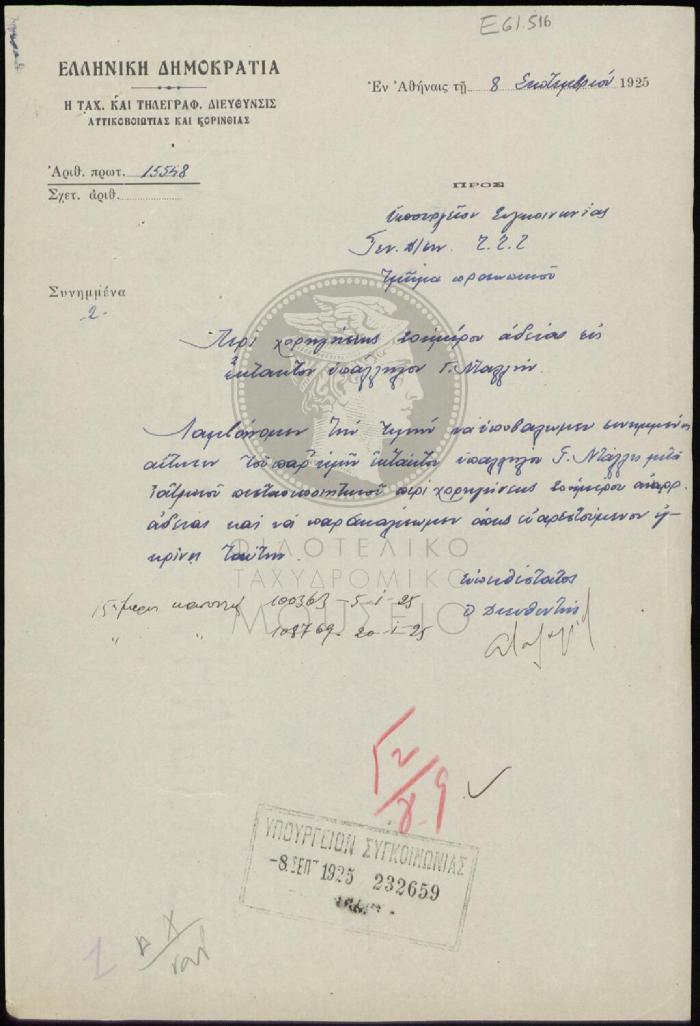 Ε61.516
ΕΛΛΗΝΙΚΗ ΔΗΜΟΚΡΑΤΙΑ
Η ΤΑΧ. ΚΑΙ ΤΗΛΕΓΡΑΦ. ΔΙΕΥΘΥΝΣΙΣ
ΑΤΤΙΚΟΒΟΙΩΤΙΑΣ ΚΑΙ ΚΟΡΙΝΘΙΑΣ
Ἐν Ἀθήναις τῇ 8 Σεπτεμβρίου 1925
Ἀριθ. πρωτ. 15548
Σχετ. ἀριθ.
ΠΡΟΣ
Ὑπουργεῖον Συγκοινωνίας
Γεν. Δ/σιν Τ.Τ.Τ
Τμῆμα προσωπικοῦ
Συνημμένα
-2-
Περί χορηγήσεως 20ημέρου ἀδείας εἰς
ἔκτακτον ὑπάλληλον Γ. Νταλλῆν.
Λαμβάνομεν τήν τιμήν νά ὑποβάλωμεν συνημμένως
αἴτησιν τοῦ παρ' ἡμῖν ἐκτάκτου ὑπαλλήλου Γ. Ντάλλη μετά
ἰατρικοῦ πιστοποιητικοῦ περί χορηγήσεως 20ημέρου ἀναρρ.
ἀδείας καί νά παρακαλέσωμεν ὅπως εὐαρεστούμενον ἐγ-
κρίνῃ ταύτην.
Εὐπειθέστατος
Ὁ Διευθυντής
100363-5-1-25
" " 108769. 20-1-25
ΦΙΛΟΤΕΛΙΚΟ
ΤΑΧΥΔΡΟΜΙΚΟ
ΜΟΥΣΕΙΟ
ΥΠΟΥΡΓΕΙΟΝ ΣΥΓΚΟΙΝΩΝΙΑΣ
-8.ΣΕΠΤ 1925 232659
1